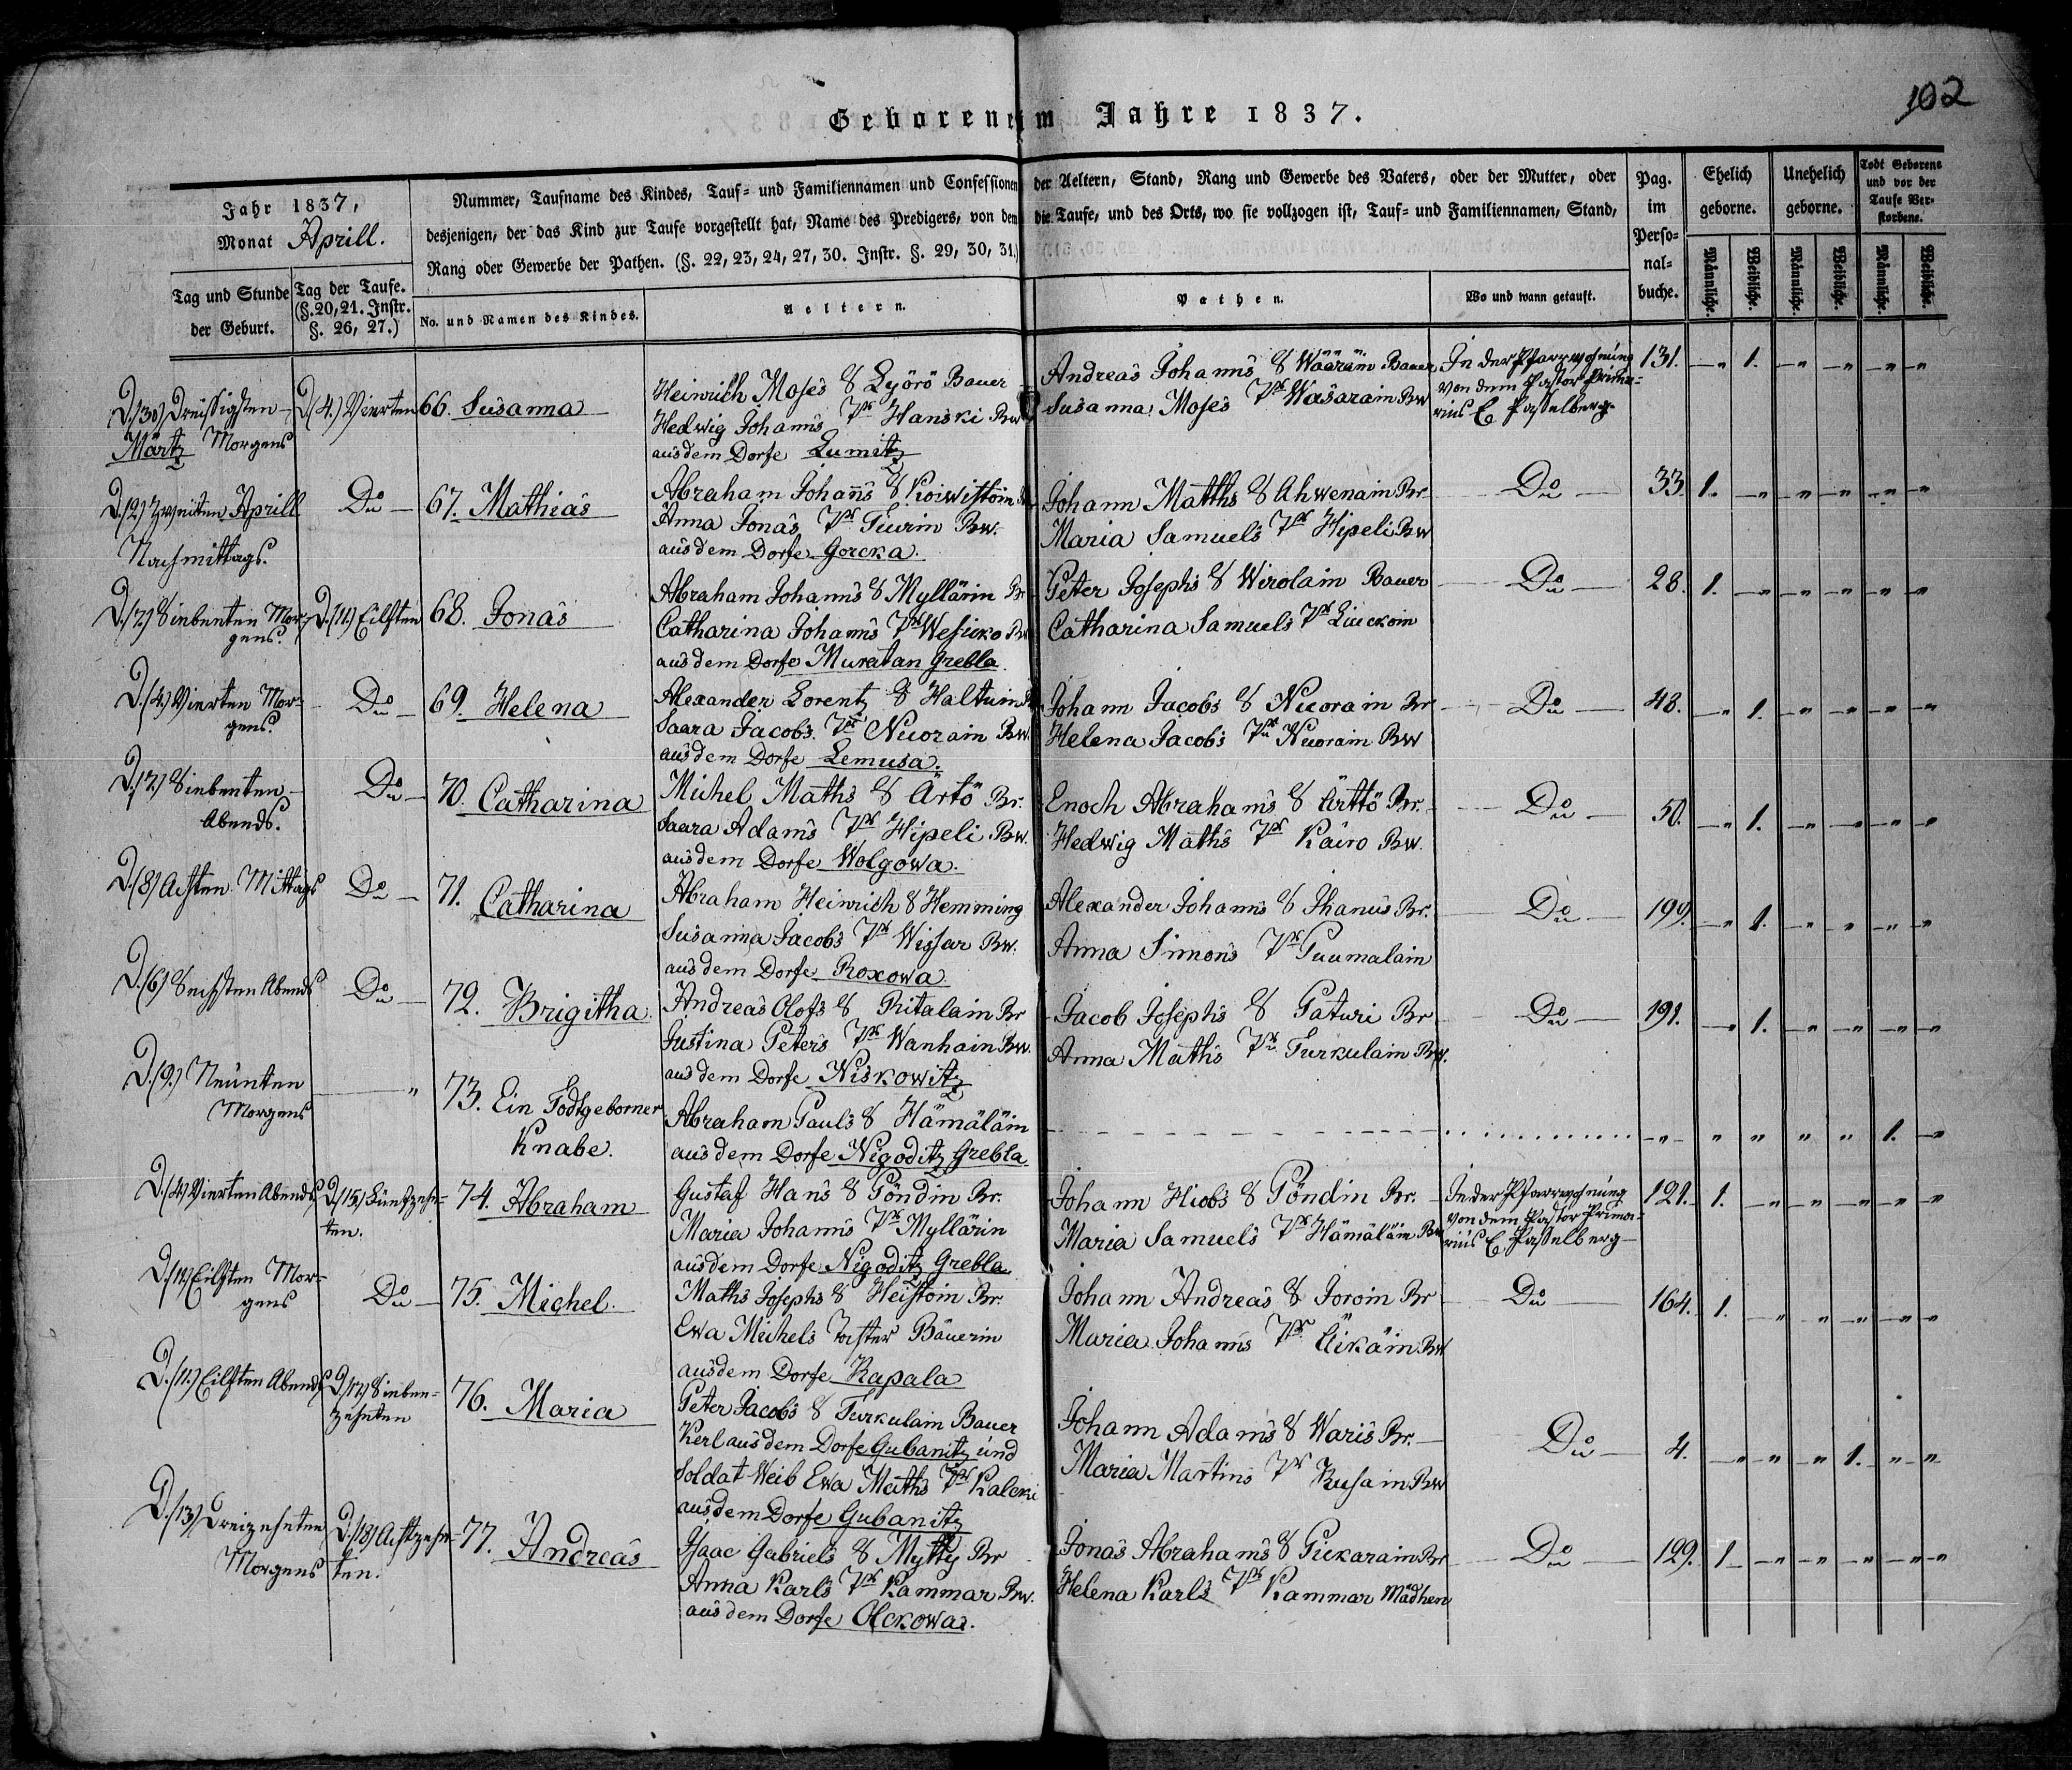 102
Geboren im Jahre 1837.
Jahr 1837,
Monat Aprill.
Tag und Stunde der Geburt.
Tag der Taufe. (§. 20, 21. Instr. §. 26, 27.)
Nummer, Taufname des Kindes, Tauf- und Familiennamen und Confessionen der Aeltern, Stand, Rang und Gewerbe des Vaters, oder der Mutter, oder
desjenigen, der das Kind zur Taufe vorgestellt hat, Name des Predigers, von dem die Taufe, und des Orts, wo sie vollzogen ist, Tauf- und Familiennamen, Stand,
Rang oder Gewerbe der Pathen. (§. 22, 23, 24, 27, 30. Instr. §. 29, 30, 31.)
No. und Namen des Kindes.
Aeltern.
Pathen.
Wo und wann getauft.
Pag. im Perso-nal-buche.
Ehelich geborne.
Unehelich geborne.
Todt Geborene und vor der Taufe Ver-storbene.
Männliche. Weibliche. Männliche. Weibliche. Männliche. Weibliche.
D. (30) Dreissigsten
Märtz Morgens
D. (4.) Vierten
66. Susanna
Heinrich Moses S Lyörö Bauer
Hedwig Johanns Tr Hanski Bw
aus dem Dorfe Lumitz
Andreas Johanns S Wääräin Bauer
Susanna Moses Tr Wasarain Bw
In der Pfarrwohnung
von dem Pastor Prima-
rius E Passelberg.
131. " 1. " " " "
D. (2) Zweiten Aprill
Nachmittags.
Do
67. Mathias
Abraham Johanns S Koiwistoin
Anna Jonas Tr Tiurin Bw.
aus dem Dorfe Gorcka.
Johann Matths S Ahwenain Br.
Maria Samuels Tr Hipeli Bw
Do
33. 1. " " " " "
D. (7.) Siebenten Mor-
gens.
D. (11.) Eilften
68. Jonas
Abraham Johanns S Myllärin Br
Catharina Johanns Tr Wesicko Bw
aus dem Dorfe Muratan Grebla
Peter Josephs S Wirolain Bauer
Catharina Samuels Tr Liuckoin
Do
28. 1. " " " " "
D. (4.) Vierten Mor-
gens.
Do
69. Helena
Alexander Lorentz S Haltuin
Saara Jacobs Tr Nuorain Bw.
aus dem Dorfe Lemusa.
Johann Jacobs S Nuorain Br
Helena Jacobs Tr Nuorain Bw
Do
48. " 1. " " " "
D. (7.) Siebenten
Abends.
Do
70. Catharina
Michel Maths S Ärtö Br.
Saara Adams Tr Hipeli Bw.
aus dem Dorfe Wolgowa.
Enoch Abrahams S Ärttö Br.
Hedwig Maths Tr Kairo Bw.
Do
50. " 1. " " " "
D. (8) Achten Mittags
Do
71. Catharina
Abraham Heinrich S Hemming
Susanna Jacobs Tr Wissar Bw.
aus dem Dorfe Roxowa.
Alexander Johanns S Ihanus Br.
Anna Simons Tr Puumalain
Do
199. " 1. " " " "
D. (6) Sechsten Abends
Do
72. Brigitha.
Andreas Olofs S Ritalain Br
Justina Peters Tr Wanhain Bw.
aus dem Dorfe Niskowitz
Jacob Josephs S Paturi Br
Anna Maths Tr Turkulain Bw.
Do
191. " 1. " " " "
D. (9.) Neunten
Morgens
"
73. Ein Todtgeborner
Knabe.
Abraham Pauls S Hämäläin
aus dem Dorfe Nigoditz Grebla
" " " " " 1. "
D. (4) Vierten Abends
D. (15) Fünfzehn-
ten.
74. Abraham
Gustaf Hans S Pöndin Br.
Maria Johanns Tr Myllärin
aus dem Dorfe Nigoditz Grebla
Johann Hiobs S Pöndin Br.
Maria Samuels Tr Hämäläin Bw
In der Pfarrwohnung
von dem Pastor Prima-
rius E Passelberg
121. 1. " " " " "
D. (11) Eilften Mor-
gens
Do
75. Michel.
Maths Josephs S Heistoin Br.
Ewa Michels Tochter Bäuerin
aus dem Dorfe Kapala
Johann Andreas S Joroin Br
Maria Johanns Tr Äikäin Bw
Do
164. 1. " " " " "
D. (11.) Eilften Abends
D. (17) Sieben-
zehnten
76. Maria
Peter Jacobs S Turkulain Bauer
Kerl aus dem Dorfe Gubanitz und
Soldat Weib Ewa Maths Tr Kalcki
aus dem Dorfe Gubanitz
Johann Adams S Waris Br.
Maria Martins Tr Kusain Bw
Do
4. " " " 1. " "
D. (13) Dreizehnten
Morgens
D. (18) Achtzehn-
ten.
77. Andreas
Isaac Gabriels S Mytty Br
Anna Karls Tr Kammar Bw.
aus dem Dorfe Olckowa.
Jonas Abrahams S Pickarain Br
Helena Karls Tr Kammar Mädhen
Do
129. 1 " " " " "